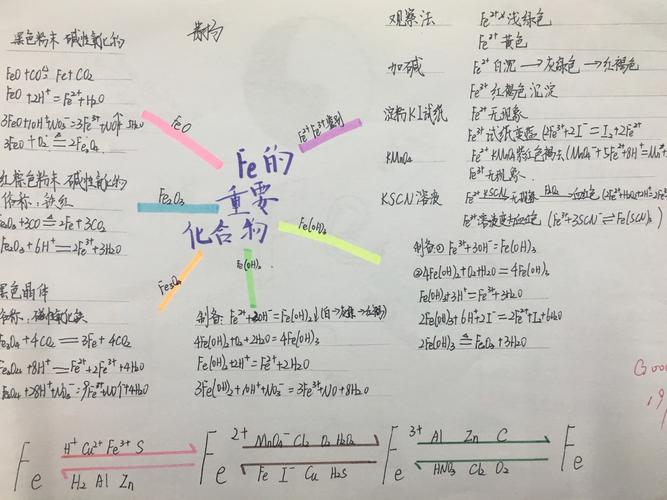 黑色粉末 碱性氧化物
FeO+CO≜Fe+CO₂
FeO+2H⁺=Fe²⁺+H₂O
3FeO+10H⁺+NO₃⁻=3Fe³⁺+NO↑+5H₂O
红棕色粉末 碱性氧化物
俗称:铁红
Fe₂O₃+3CO≜2Fe+3CO₂
Fe₂O₃+6H⁺=2Fe³⁺+3H₂O
黑色晶体
Fe₃O₄+4CO₂=3Fe+4CO₂
Fe₃O₄+8H⁺=Fe²⁺+2Fe³⁺+4H₂O
FeO
Fe₂O₃
Fe₃O₄
Fe的
重要
化合物
Fe(OH)₂
Fe(OH)₃
制备: Fe²⁺+2OH⁻=Fe(OH)₂↓
4Fe(OH)₂+O₂+2H₂O=4Fe(OH)₃
Fe(OH)₂+2H⁺=Fe²⁺+2H₂O
3Fe(OH)₂+10H⁺+NO₃⁻=3Fe³⁺+NO+8H₂O
观察法 Fe²⁺ 浅绿色
Fe³⁺ 黄色
加碱 Fe²⁺ 白沉→灰绿色→红褐色
Fe³⁺ 红褐色沉淀
淀粉KI试纸 Fe²⁺ 无现象
Fe³⁺ 试纸变蓝 (2Fe³⁺+2I⁻=I₂+2Fe²⁺
KMnO₄ Fe²⁺ KMnO₄紫红色褪去 (MnO₄⁻+5Fe²⁺+8H⁺=Mn²⁺
Fe³⁺ 无现象
KSCN溶液 Fe²⁺ KSCN 无现象 H₂O₂ 血红色
Fe³⁺ 溶液变血红色 (Fe³⁺+3SCN⁻⇌Fe(SCN)₃)
制备① Fe³⁺+3OH⁻=Fe(OH)₃
②4Fe(OH)₂+O₂+H₂O=4Fe(OH)₃
Fe(OH)₃+3H⁺=Fe³⁺+3H₂O
2Fe(OH)₃+6H⁺+2I⁻=2Fe²⁺+I₂+6H₂O
2Fe(OH)₃≜Fe₂O₃+3H₂O
Fe H⁺ Cu²⁺ Fe³⁺ S Fe²⁺ MnO₄⁻ Cl₂ O₂ H₂O₂ Fe³⁺ Al Zn C Fe
H₂ Al Zn Fe I⁻ Cu H₂S HNO₃ Cl₂ O₂